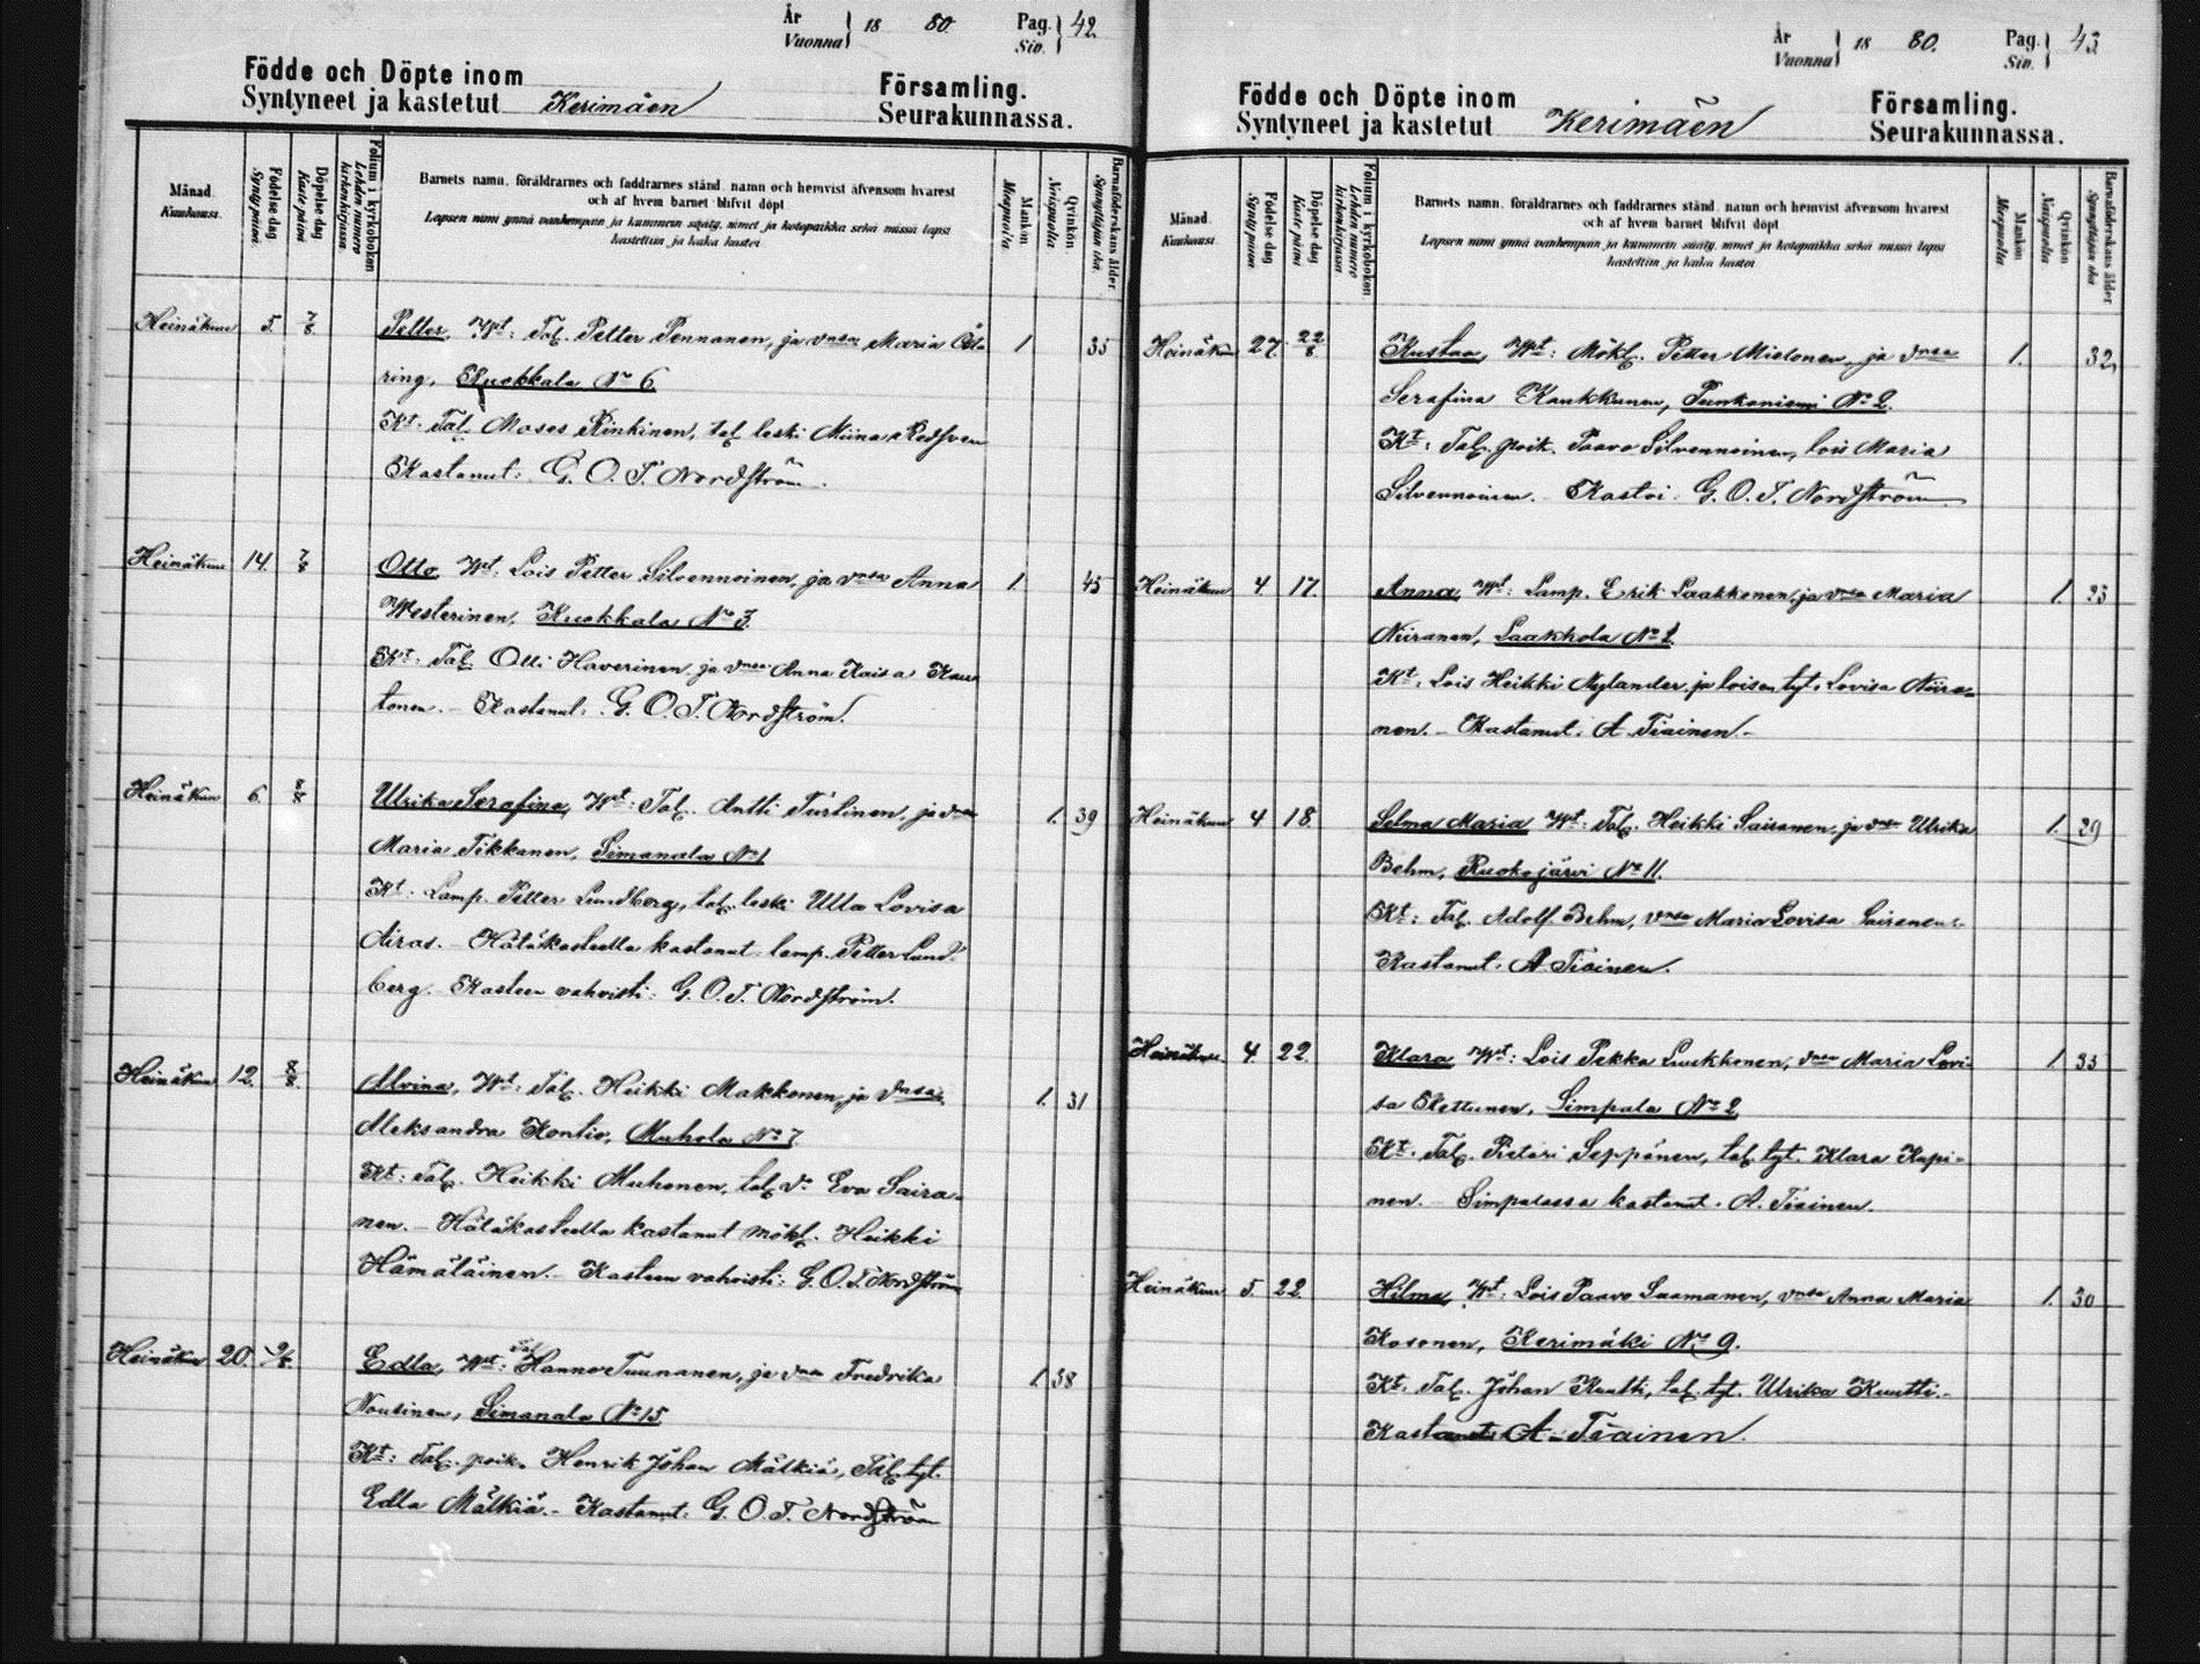 År
Vuonna } 18 80. Pag.
Siv. } 42
Födde och Döpte inom
Syntyneet ja kastetut Kerimäen Församling.
Seurakunnassa.
Månad.
Kuukausi.
Födelse dag
Synty päivä
Döpelse dag
Kaste päivä
Folium i kyrkoboken
Lehden numero kirkonkirjassa.
Barnets namn, föräldrarnes och faddrarnes stånd, namn och hemvist äfvensom hvarest
och af hvem barnet blifvit döpt
Lapsen nimi ynnä vanhempain ja kummein sääty, nimet ja kotopaikka sekä missä lapsi
kastettiin ja kuka kastoi
Mankön
Miespuolta
Qvinkön
Naispuolta
Barnaföderskans ålder
Synnyttäjän ikä
Heinäkuu 5. 7/8 Petter, Wt: Tal. Petter Pennanen, ja vnsa Maria 1 35
ring, Ruokkala No 6
Kt: Tal. Moses Rinkinen, tal. leski Miina Redsven
Kastanut: G. O. T. Nordström.
Heinäkuu 14. 7/8 Otto Wt: Lois Petter Silvennoinen, ja vnsa Anna 1. 45
Westerinen, Kuokkala No 3.
Kt: Tal. Olli Haverinen ja vnsa Anna Kaisa Kau
tonen. - Kastanut: G. O. T. Nordström.
Heinäkuu 6. 8/8 Ulrika Serafina, Wt: Tal. Antti Turtinen, ja vnsa 1. 39
Maria Tikkanen, Simanala No 1
Kt: Lamp. Petter Lundberg, tal. leski Ulla Lovisa
Airas. - Hätäkasteella kastanut lamp. Petter Lund-
berg. Kasteen vahvisti: G. O. T. Nordström.
Heinäkuu 12. 8/8. Alvina, Wt: Tal. Heikki Makkonen, ja vnsa 1. 31
Aleksandra Kontio, Muhola No 7
Kt: Tal. Heikki Muhonen, tal. v. Eva Saira-
nen. - Hätäkasteella kastanut mökl. Heikki
Hämäläinen. - Kasteen vahvisti: G. O. T. Nordström
Heinäkuu 20. 9/8 Edla, Wt: Tal. Hannu Tuunanen, ja vnsa Fredrika 1. 38
Nousinen, Simanala No 15
Kt: Tal. poik. Henrik Johan Mälkiä, Tal. tyt.
Edla Mälkiä. - Kastanut: G. O. T. Nordström
År
Vuonna } 18 80. Pag.
Siv. } 43
Födde och Döpte inom
Syntyneet ja kastetut Kerimäen Församling.
Seurakunnassa.
Månad.
Kuukausi
Födelse dag
Synty päivä
Döpelse dag
Kaste päivä
Folium i kyrkoboken
Lehden numero kirkonkirjassa
Barnets namn, föräldrarnes och faddrarnes stånd, namn och hemvist äfvensom hvarest
och af hvem barnet blifvit döpt
Lapsen nimi ynnä vanhempain ja kummein sääty, nimet ja kotopaikka sekä missä lapsi
kastettiin ja kuka kastoi
Mankön
Miespuolta
Qvinkön
Naispuolta
Barnaföderskans ålder
Synnyttäjän ikä
Heinäk. 27. 22/8. Kustaa, Wt: Mökl. Petter Mielonen, ja vnsa 1. 32
Serafina Kaukkunen, Punkaniemi No 2.
Kt: Tal. poik. Paavo Silvennoinen, lois Maria
Silvennoinen. - Kastoi: G. O. T. Nordström
Heinäkuu 4 17. Anna, Wt: Lamp. Erik Laakkonen, ja vnsa Maria 1. 23
Niiranen, Laakkola No 2.
Kt: Lois Heikki Nylander, ja loisen tyt. Lovisa Niira-
nen. - Kastanut: A. Tiainen.
Heinäkuu 4 18. Selma Maria Wt: Tal. Heikki Sairanen, ja vnsa Ulrika 1. 29
Behm, Ruokojärvi No 11.
Kt: Tal. Adolf Behm, vnsa Maria Lovisa Sairanen.
Kastanut: A. Tiainen.
Heinäkuu 4. 22. Klara Wt: Lois Pekka Luukkonen, vnsa Maria Lovi- 1. 33
sa Kettunen, Simpala No 2
Kt: Tal. Pietari Seppänen, tal. tyt. Klara Kupi-
nen. - Simpalassa kastanut: A. Tiainen.
Heinäkuu 5. 22. Hilma, Wt: Lois Paavo Saamanen, vnsa Anna Maria 1. 30
Kosonen, Kerimäki No 9.
Kt: Tal. Johan Kuutti, tal. tyt. Ulrika Kuutti.
Kastanut: A. Tiainen.